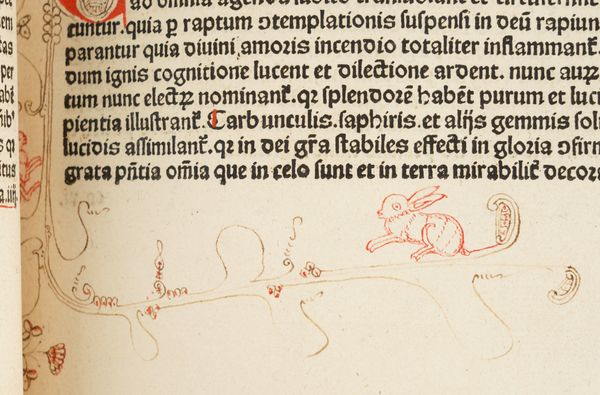 ad omnia agenda subito
cuntur. quia ꝑ raptum ↄtemplationis suspensi in deū rapiun
parantur quia diuini amoris incendio totaliter inflammant᷑.
dum ignis cognitione lucent et dilectione ardent. nunc aurꝝ
tum nunc electꝝ nominant᷑. qꝛ splendorē habēt purum et luci
pientia illustrant᷑. Carbunculis. saphiris. et alijs gemmis soli
lucidis assimilant᷑. qꝛ in dei gr̄a stabiles effecti in gloria ↄfirm
grata pn̄tia om̄ia que in celo sunt et in terra mirabilit᷑ decora